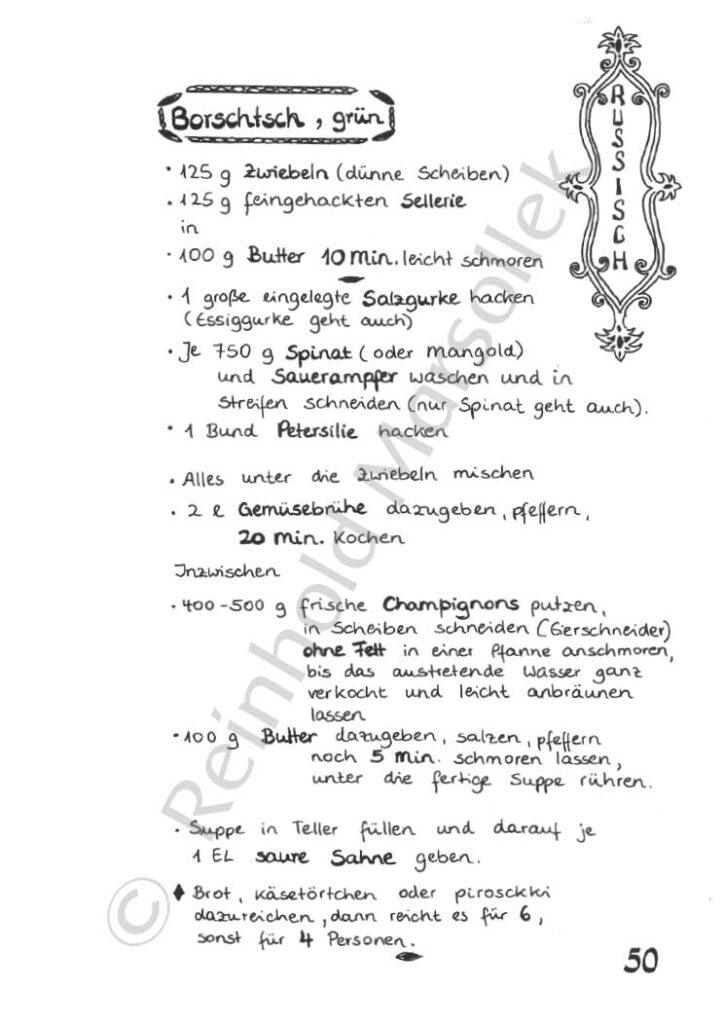 Borschtsch, grün
RUSSISCH
• 125 g Zwiebeln (dünne Scheiben)
• 125 g feingehackten Sellerie
in
• 100 g Butter 10 Min. leicht schmoren
• 1 große eingelegte Salzgurke hacken
(Essiggurke geht auch)
• Je 750 g Spinat (oder Mangold)
und Sauerampfer waschen und in
Streifen schneiden (nur Spinat geht auch).
• 1 Bund Petersilie hacken
• Alles unter die Zwiebeln mischen
• 2 l Gemüsebrühe dazugeben, pfeffern,
20 Min. Kochen
Inzwischen
• 400-500 g frische Champignons putzen,
in Scheiben schneiden (Eierschneider)
ohne Fett in einer Pfanne anschmoren,
bis das austretende Wasser ganz
verkocht und leicht anbräunen
lassen
• 100 g Butter dazugeben, salzen, pfeffern
noch 5 Min. schmoren lassen,
unter die fertige Suppe rühren.
• Suppe in Teller füllen und darauf je
1 EL saure Sahne geben.
♦ Brot, Käsetörtchen oder Piroschki
dazureichen, dann reicht es für 6,
sonst für 4 Personen.
50
© Reinhold Marsollek